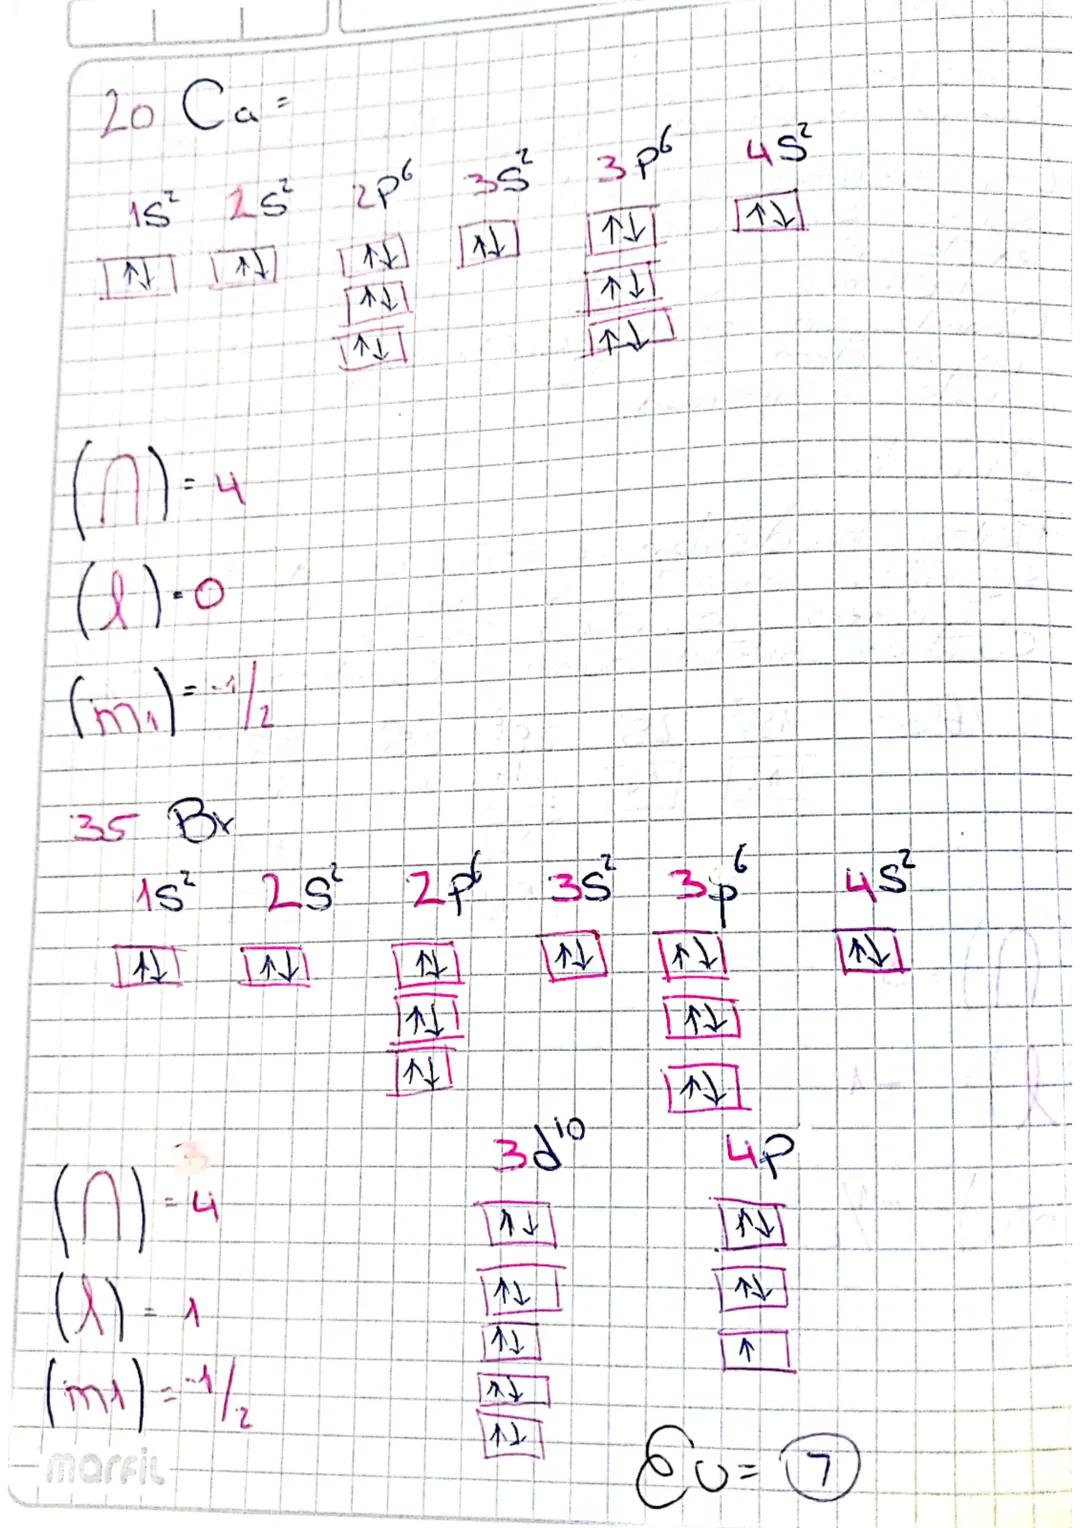 20 Ca =
1s² 2s² 2p⁶ 3s² 3p⁶ 4s²
↑↓ ↑↓ ↑↓ ↑↓ ↑↓ ↑↓
↑↓ ↑↓
↑↓ ↑↓
(n) = 4
(l) = 0
(m1) = -1/2
35 Br
1s² 2s² 2p⁶ 3s² 3p⁶ 4s²
↑↓ ↑↓ ↑↓ ↑↓ ↑↓ ↑↓
↑↓ ↑↓
↑↓ ↑↓
3d¹⁰ 4p
↑↓ ↑↓
↑↓ ↑↓
↑↓ ↑
↑↓
↑↓
(n) = 4
(l) = 1
(m1) = -1/2
Ev = 7
marfil